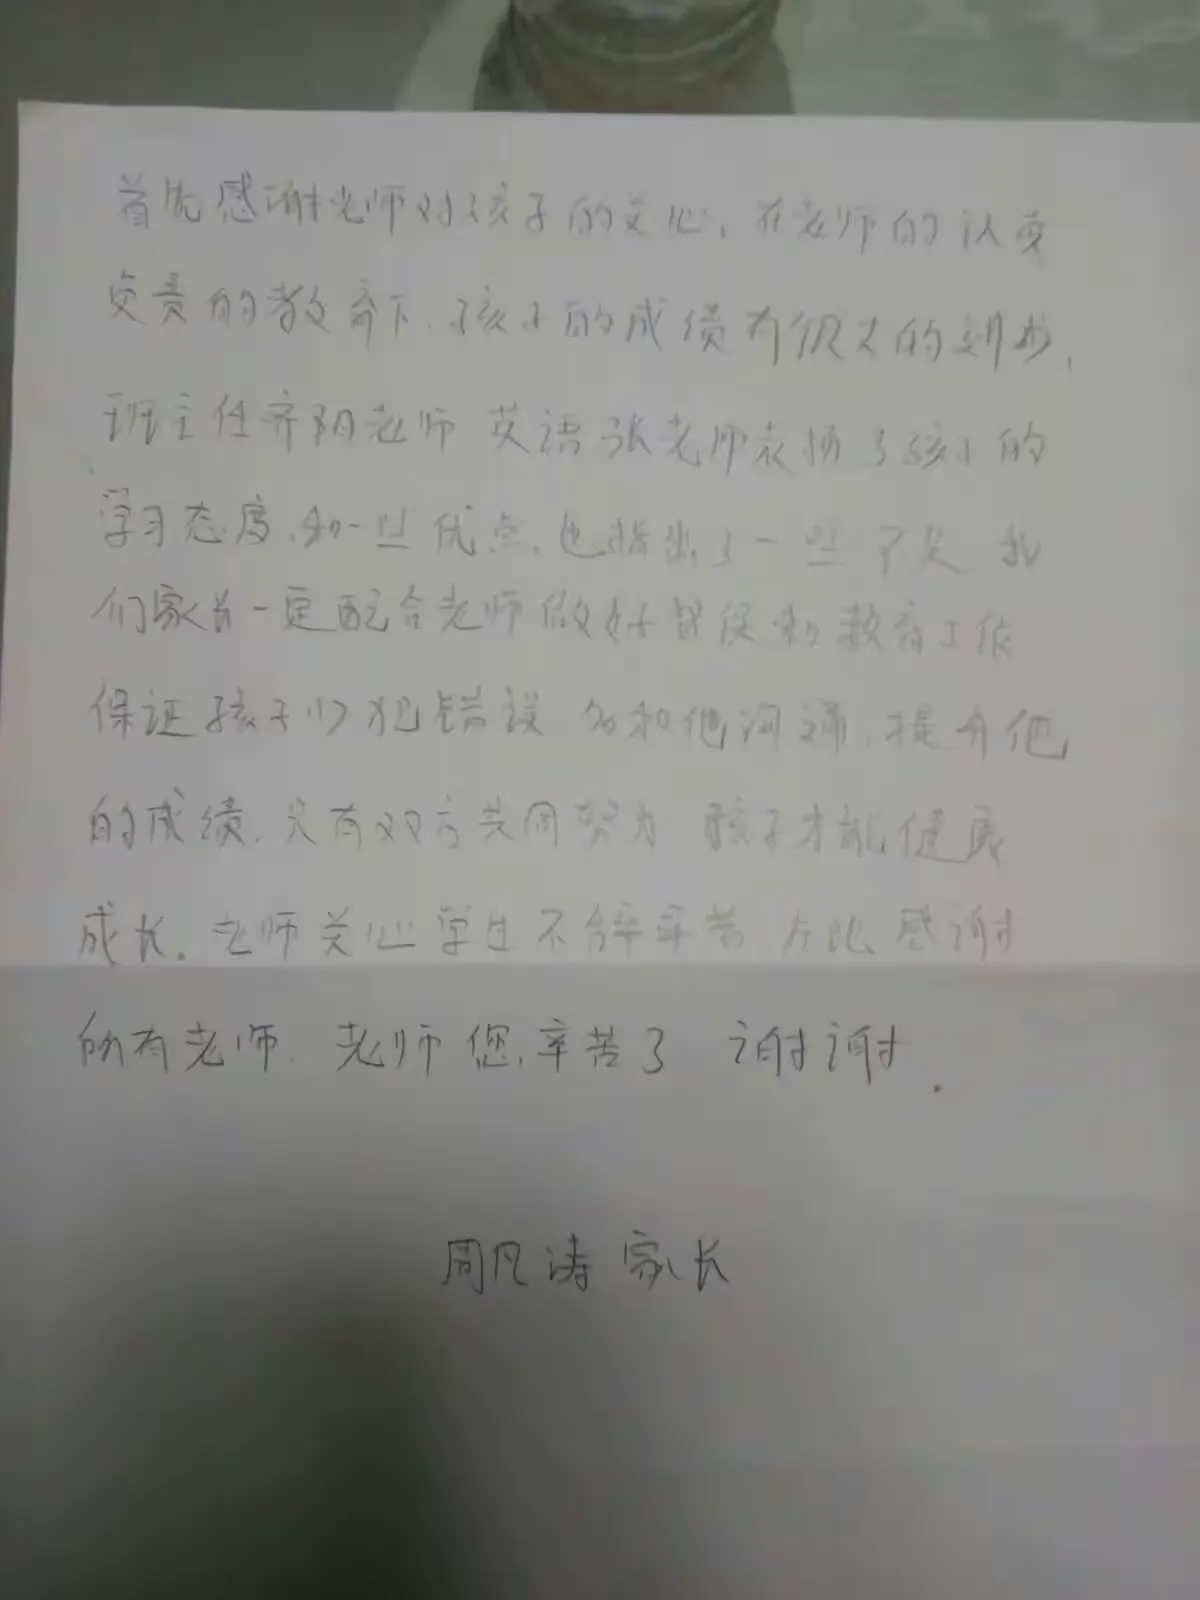 首先感谢老师对孩子的关心,在老师的认真
负责的教育下,孩子的成绩有很大的进步,
班主任齐阳老师 英语张老师表扬了孩子的
学习态度,和一些优点,也指出了一些不足 我
们家长一定配合老师做好督促和教育工作
保证孩子少犯错误 多和他沟通,提升他
的成绩,只有双方共同努力 孩子才能健康
成长.老师关心学生不辞辛苦 在此感谢
所有老师.老师您辛苦了 谢谢.
周凡涛家长